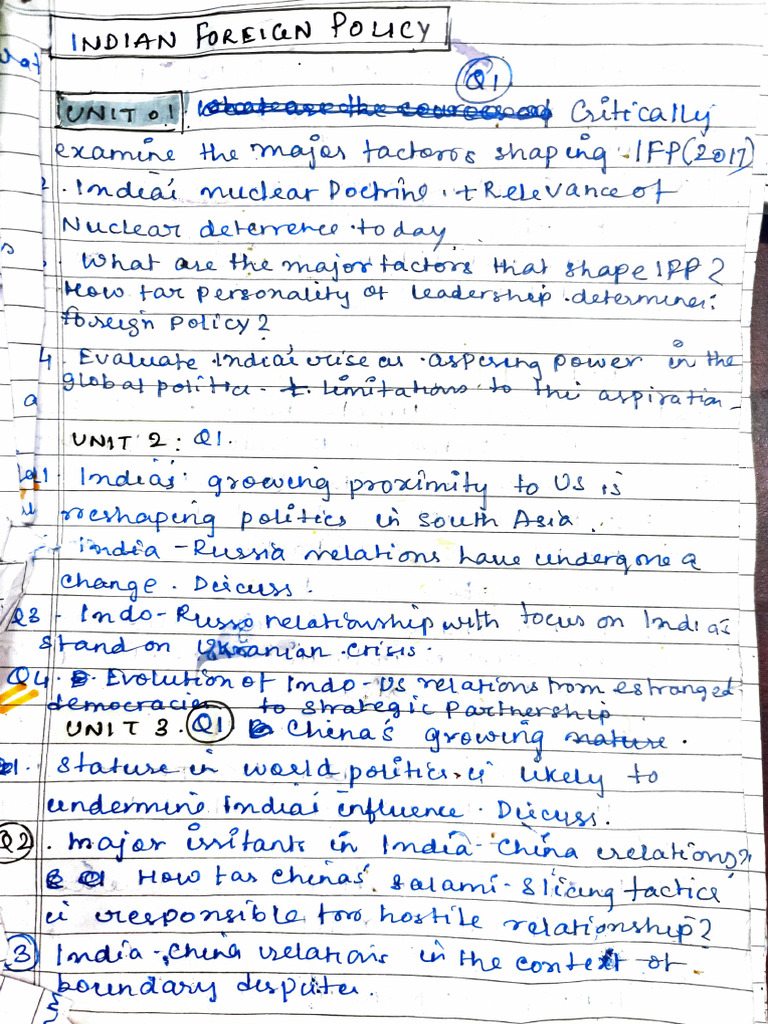 INDIAN FOREIGN POLICY
Q1
UNIT 01 Critically
examine the major factors shaping IFP(2017)
2. India's nuclear Doctrine. + Relevance of
Nuclear deterrence today.
. What are the major factors that shape IFP?
How far personality of leadership determines
foreign policy?
4. Evaluate India's rise as aspiring power in the
global politics. + limitations to this aspiration.
a
UNIT 2: Q1.
Q1. India's growing proximity to US is
reshaping politics in South Asia.
India - Russia relations have undergone a
change. Discuss.
Q3. Indo-Russo relationship with focus on India's
stand on Ukranian crisis.
Q4. Evolution of Indo-US relations from estranged
democracies to strategic partnership
UNIT 3. Q1 China's growing nature.
1. stature in world politics is likely to
undermine India's influence. Discuss.
Q2. major irritants in India-China relations?
How far China's salami-slicing tactics
is responsible for hostile relationship?
3 India-China relations in the context of
boundary disputes.